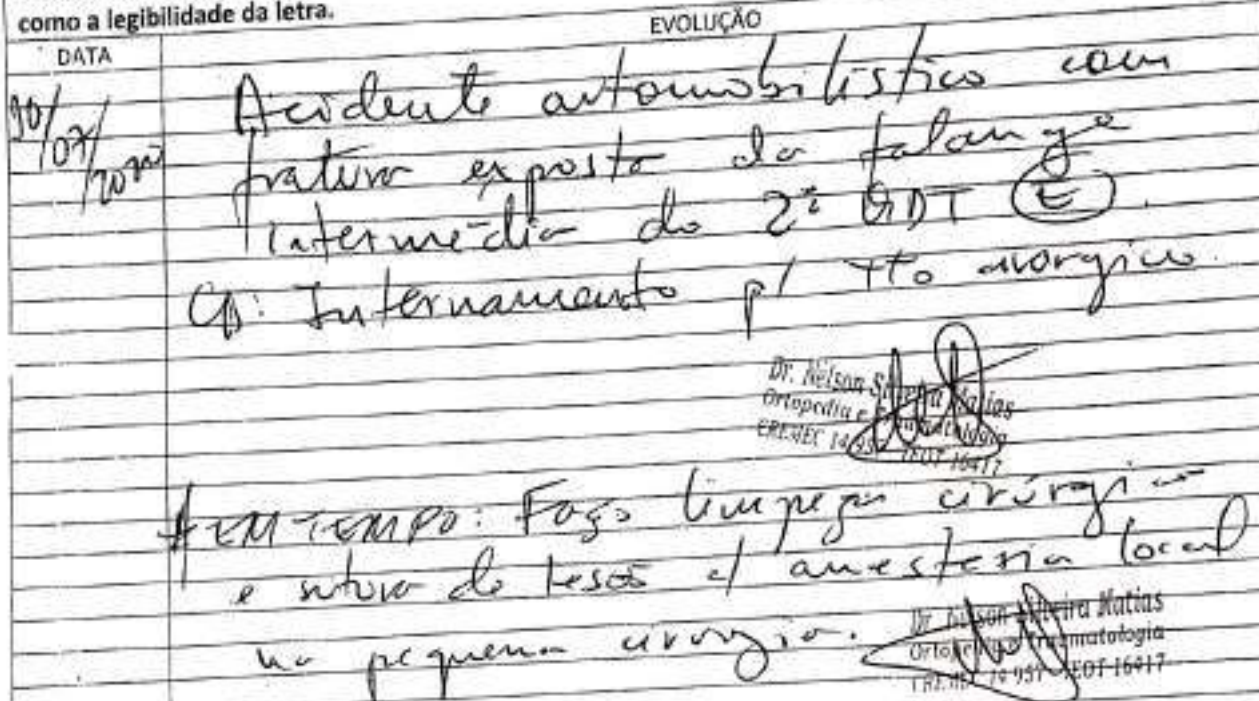 como a legibilidade da letra.
DATA
EVOLUÇÃO
Acidente automobilístico com
fratura exposta da falange
intermédia do 2º QDT (E).
CD: Internamento p/ tto cirúrgico.
Dr. Nelson Silveira Matias
Ortopedia e Traumatologia
CREMEC 14 957 TEOT 16417
* EM TEMPO: Faço limpeza cirúrgica
e sutura de lesão c/ anestesia local
na pequena cirurgia.
Dr. Nelson Silveira Matias
Ortopedia e Traumatologia
CREMEC 14 957 TEOT 16417